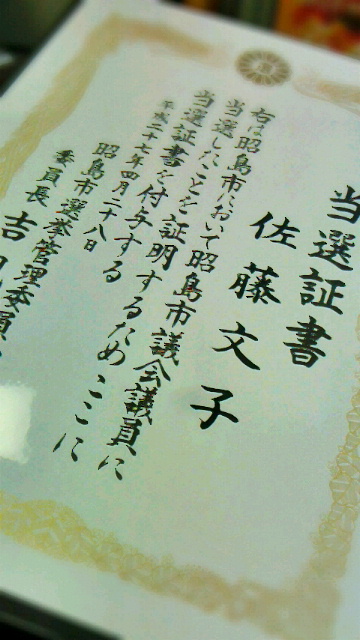 当選証書
佐藤文子
右は昭島市において昭島市議会議員に
当選したことを証明するためここに
当選証書を付与する
平成二十七年四月二十八日
昭島市選挙管理委員
委員長 吉